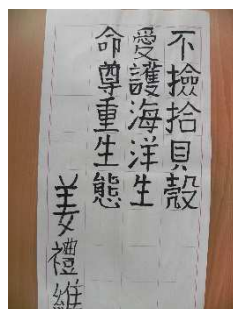 不撿拾貝殼
愛護海洋生
命尊重生態
姜禮維